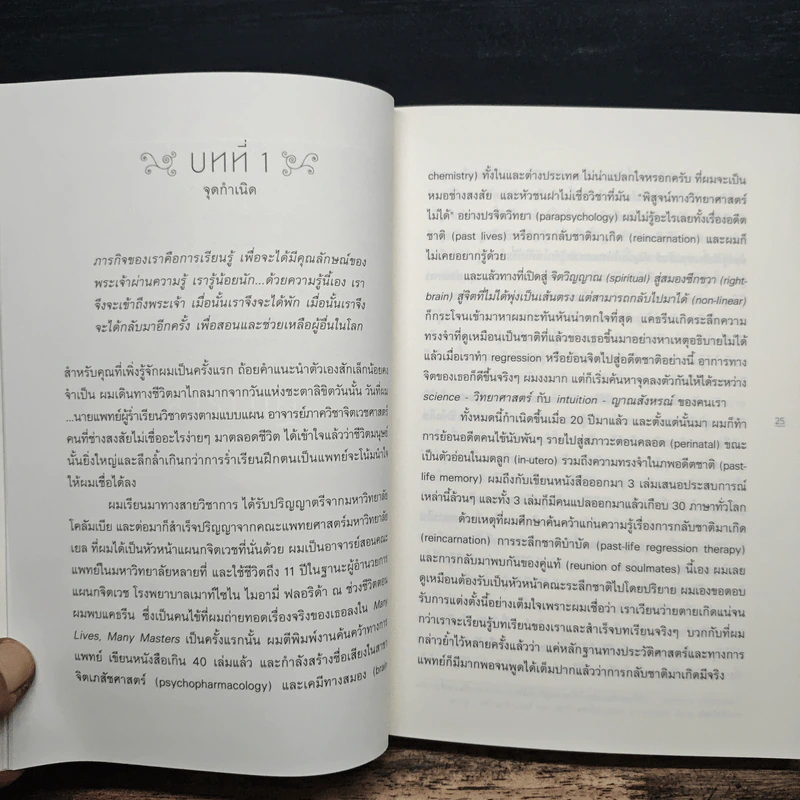 บทที่ 1
จุดกำเนิด
ภารกิจของเราคือการเรียนรู้ เพื่อจะได้มีคุณลักษณ์ของ
พระเจ้าผ่านความรู้ เรารู้น้อยนัก...ด้วยความรู้นี้เอง เรา
จึงจะเข้าถึงพระเจ้า เมื่อนั้นเราจึงจะได้พัก เมื่อนั้นเราจึง
จะได้กลับมาอีกครั้ง เพื่อสอนและช่วยเหลือผู้อื่นในโลก
สำหรับคุณที่เพิ่งรู้จักผมเป็นครั้งแรก ถ้อยคำแนะนำตัวเองสักเล็กน้อยคง
จำเป็น ผมเดินทางชีวิตมาไกลมากจากวันแห่งชะตาลิขิตวันนั้น วันที่ผม
...นายแพทย์ผู้ร่ำเรียนวิชาตรงตามแบบแผน อาจารย์ภาควิชาจิตเวชศาสตร์
คนที่ช่างสงสัยไม่เชื่ออะไรง่ายๆ มาตลอดชีวิต ได้เข้าใจแล้วว่าชีวิตมนุษย์
นั้นยิ่งใหญ่และลึกล้ำเกินกว่าการร่ำเรียนฝึกตนเป็นแพทย์จะโน้มนำใจ
ให้ผมเชื่อได้ลง
ผมเรียนมาทางสายวิชาการ ได้รับปริญญาตรีจากมหาวิทยาลัย
โคลัมเบีย และต่อมาก็สำเร็จปริญญาจากคณะแพทยศาสตร์มหาวิทยาลัย
เยล ที่ผมได้เป็นหัวหน้าแผนกจิตเวชที่นั่นด้วย ผมเป็นอาจารย์สอนคณะ
แพทย์ในมหาวิทยาลัยหลายที่ และใช้ชีวิตถึง 11 ปีในฐานะผู้อำนวยการ
แผนกจิตเวช โรงพยาบาลเมาท์ไซไน ไมอามี่ ฟลอริด้า ณ ช่วงชีวิตตอน
ผมพบแคธรีน ซึ่งเป็นคนไข้ที่ผมถ่ายทอดเรื่องจริงของเธอลงใน Many
Lives, Many Masters เป็นครั้งแรกนั้น ผมตีพิมพ์งานค้นคว้าทางการ
แพทย์ เขียนหนังสือเกิน 40 เล่มแล้ว และกำลังสร้างชื่อเสียงในสาขา
จิตเภสัชศาสตร์ (psychopharmacology) และเคมีทางสมอง (brain
chemistry) ทั้งในและต่างประเทศ ไม่น่าแปลกใจหรอกครับ ที่ผมจะเป็น
หมอช่างสงสัย และหัวชนฝาไม่เชื่อวิชาที่มัน "พิสูจน์ทางวิทยาศาสตร์
ไม่ได้" อย่างปรจิตวิทยา (parapsychology) ผมไม่รู้อะไรเลยทั้งเรื่องอดีต
ชาติ (past lives) หรือการกลับชาติมาเกิด (reincarnation) และผมก็
ไม่เคยอยากรู้ด้วย
และแล้วทางที่เปิดสู่ จิตวิญญาณ (spiritual) สู่สมองซีกขวา (right-
brain) สู่จิตที่ไม่ได้พุ่งเป็นเส้นตรง แต่สามารถกลับไปมาได้ (non-linear)
ก็กระโจนเข้ามาหาผมกะทันหันน่าตกใจที่สุด แคธรีนเกิดระลึกความ
ทรงจำที่ดูเหมือนเป็นชาติที่แล้วของเธอขึ้นมาอย่างหาเหตุอธิบายไม่ได้
แล้วเมื่อเราทำ regression หรือย้อนจิตไปสู่อดีตชาติอย่างนี้ อาการทาง
จิตของเธอก็ดีขึ้นจริงๆ ผมงงมาก แต่ก็เริ่มค้นหาจุดลงตัวกันให้ได้ระหว่าง
science - วิทยาศาสตร์ กับ intuition - ญาณสังหรณ์ ของคนเรา
ทั้งหมดนี้กำเนิดขึ้นเมื่อ 20 ปีมาแล้ว และตั้งแต่นั้นมา ผมก็ทำ
การย้อนอดีตคนไข้นับพันๆ รายไปสู่สภาวะตอนคลอด (perinatal) ขณะ
เป็นตัวอ่อนในมดลูก (in-utero) รวมถึงความทรงจำในภพอดีตชาติ (past-
life memory) ผมถึงกับเขียนหนังสือออกมา 3 เล่มเสนอประสบการณ์
เหล่านี้ล้วนๆ และทั้ง 3 เล่มก็มีคนแปลออกมาแล้วเกือบ 30 ภาษาทั่วโลก
ด้วยเหตุที่ผมศึกษาค้นคว้าแก่นความรู้เรื่องการกลับชาติมาเกิด
(reincarnation) การระลึกชาติบำบัด (past-life regression therapy)
และการกลับมาพบกันของคู่แท้ (reunion of soulmates) นี้เอง ผมเลย
ดูเหมือนต้องรับเป็นหัวหน้าคณะระลึกชาติไปโดยปริยาย ผมเองขอตอบ
รับการแต่งตั้งนี้อย่างเต็มใจเพราะผมเชื่อว่า เราเวียนว่ายตายเกิดแน่จน
กว่าเราจะเรียนรู้บทเรียนของเราและสำเร็จบทเรียนจริงๆ บวกกับที่ผม
กล่าวย้ำไว้หลายครั้งแล้วว่า แค่หลักฐานทางประวัติศาสตร์และทางการ
แพทย์ก็มีมากพอจนพูดได้เต็มปากแล้วว่าการกลับชาติมาเกิดมีจริง
25